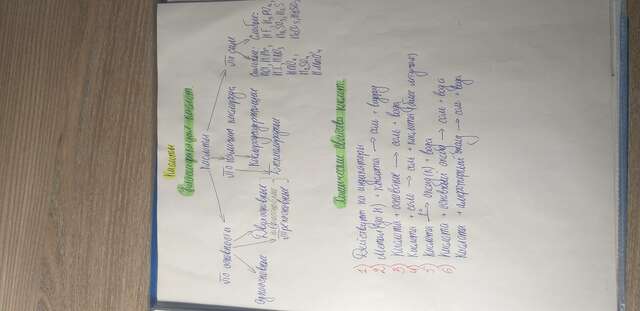 Кислоты
Классификация кислот
Кислоты
По основности
По наличию кислорода
По силе
Одноосновные
Двухосновные
Трехосновные
Кислородсодержащие
Бескислородные
Сильные:
Слабые:
Химические свойства кислот
1) Действуют на индикаторы
2) Металл (до H) + кислота → соль +
3) Кислота + основание → соль + вода
4) Кислота + соль → соль + кислота (более летучая)
5) Кислота → оксид (к) + вода
6) Кислота + основный оксид → соль + вода
Кислота + амфотерный оксид → соль + вода